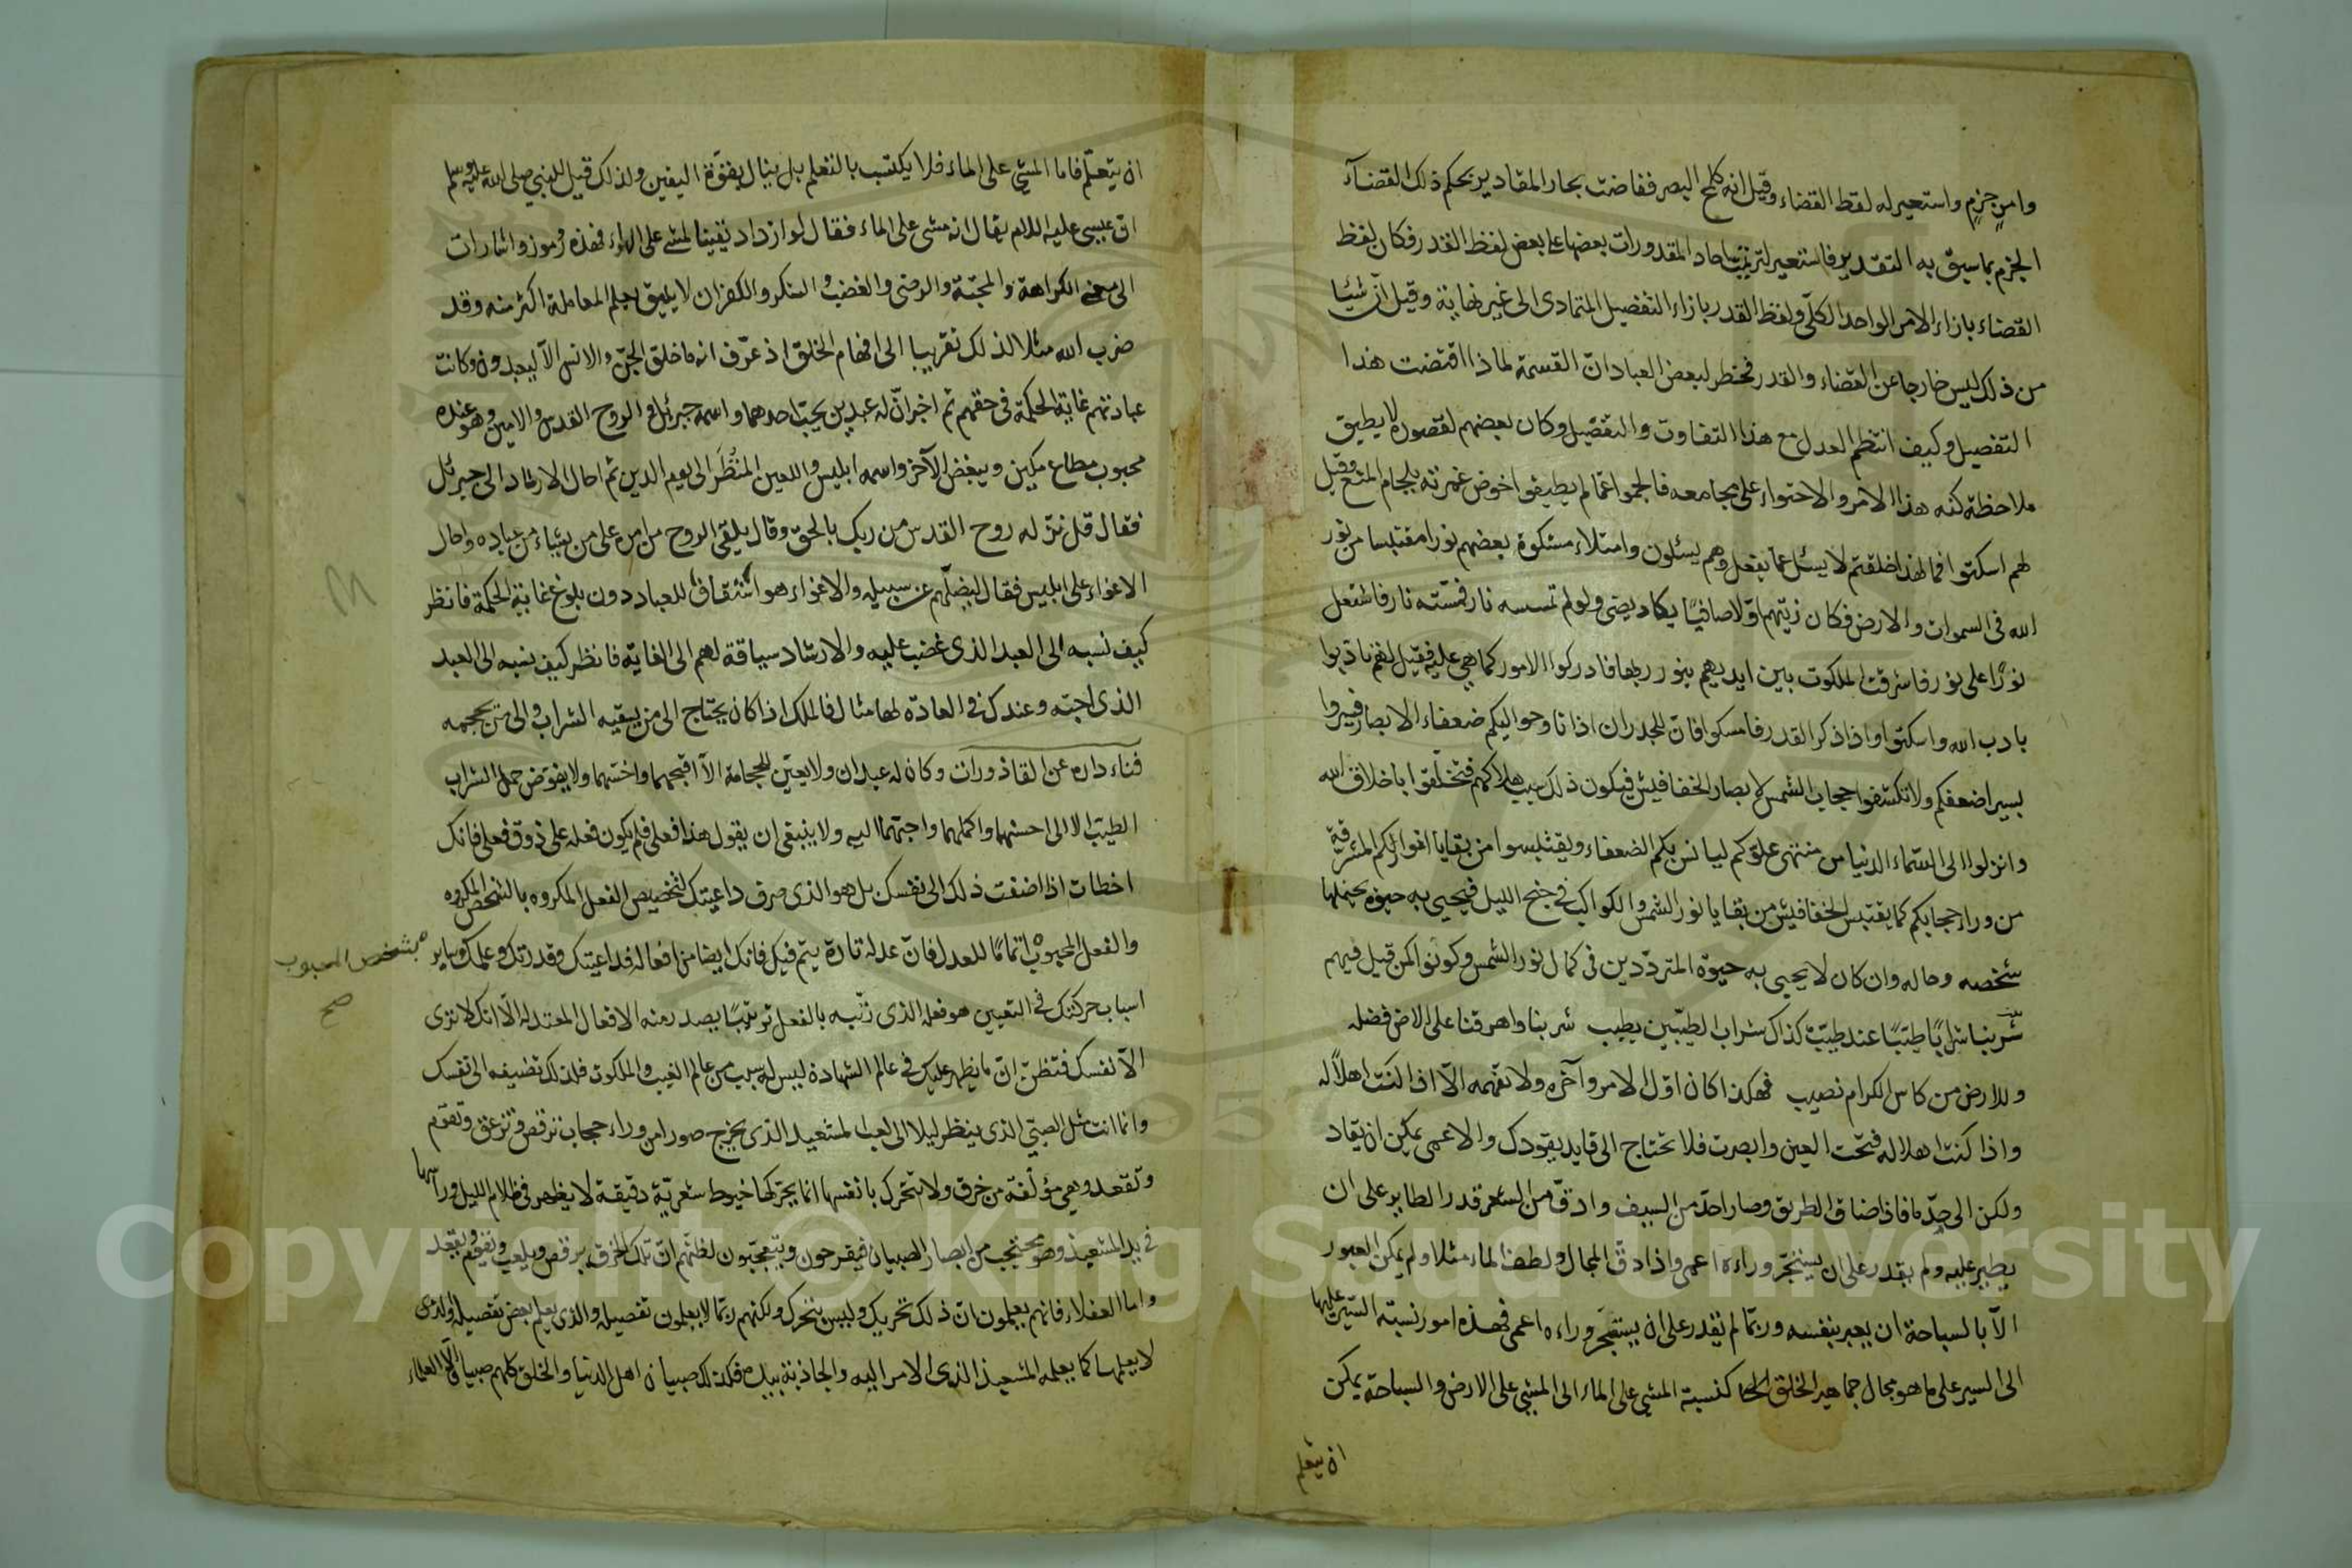 وامر جزم واستعير له لفظ القضاء وقيل انه كلمح البصر ففاضت بحار المقادير بحكم ذلك القضاء
الجزم بما سبق به التقدير فاستعير لترتب احاد المقدورات بعضها على بعض لفظ القدر فكان لفظ
القضاء بازاء الامر الواحد الكلّى ولفظ القدر بازاء التفصيل المتمادى الى غير نهاية وقيل انّ شيئا
من ذلك ليس خارجا عن القضاء والقدر فخطر لبعض العباد انّ القسمة لماذا اقتضت هذا
التفصيل وكيف انتظم العدل مع هذا التفاوت والتفصيل وكان بعضهم لقصوره لا يطيق
ملاحظة كنه هذا الامر والاحتواء على مجامعه فالجموا عمّا لم يطيقوا خوض غمرته بلجام المنع وقيل
لهم اسكتوا فما لهذا خلقتم لا يسئل عما يفعل وهم يسئلون وامتلاء مشكوة بعضهم نورا مقتبسا من نور
الله فى السموات والارض فكان زيتهم اوّلا صافيًا يكاد يضئ ولو لم تمسسه نار فمسّته نار فاشتعل
نورًا على نور فاشرقت الملكوت بين ايديهم بنور ربها فادركوا الامور كما هى عليه فقيل لهم تادبوا
بادب الله واسكتوا واذا ذكر القدر فامسكوا فانّ للجدران اذانا وحواليكم ضعفاء الابصار فسيروا
بسير اضعفكم ولا تكشفوا حجاب الشمس لابصار الخفافيش فيكون ذلك سبب هلاكهم فتخلّقوا باخلاق الله
وانزلوا الى السّماء الدنيا من منتهى علوّكم ليانس بكم الضعفاء ويقتبسوا من بقايا انواركم المشرقة
من وراء حجابكم كما يقتبس الخفافيش من بقايا نور الشمس والكواكب فى جنح الليل فيحيى به حيوة يحتملها
شخصه وحاله وان كان لا يحيى به حيوة المتردّدين فى كمال نور الشمس وكونوا كمن قيل فيهم
شربنا شرابًا طيّبًا عند طيّب كذاك شراب الطيّبين يطيب شربنا واهرقنا على الارض فضله
وللارض من كاس الكرام نصيب فهكذا كان اوّل الامر وآخره ولا تفهمه الّا اذا كنت اهلًا له
واذا كنت اهلا له فتحت العين وابصرت فلا تحتاج الى قايد يقودك والاعمى يمكن ان يقاد
ولكن الى حدّ ما فاذا ضاق الطريق وصار احدّ من السيف وادقّ من الشعر قدر الطاير على ان
يطير عليه ولم يقدر على ان يستجرّ وراءه اعمى واذا دقّ المجال ولطف الماء مثلا ولم يمكن العبور
الّا بالسباحة ان يعبر بنفسه وربّما لم يقدر على ان يستجرّ وراءه اعمى فهذه امور نسبة السّير عليها
الى السير على ما هو مجال جماهير الخلق كنسبة المشى على الماء الى المشى على الارض والسباحة يمكن
ان تتعلم
ان تتعلّم فاما المشى على الماء فلا يكتسب بالتعلم بل ينال بقوّة اليقين ولذلك قيل للنبى صلى الله عليه وسلم
انّ عيسى عليه السلام يقال انه مشى على الماء فقال لو ازداد يقينا لمشى على الهواء فهذه رموز واشارات
الى معنى الكراهة والمحبّة والرضى والغضب والشكر والكفران لا يليق بعلم المعاملة اكثر منه وقد
ضرب الله مثلا لذلك تقريبا الى افهام الخلق اذ عرّف انه ما خلق الجنّ والانس الّا ليعبدون وكانت
عبادتهم غاية الحكمة فى حقهم ثم اخبر انّ له عبدين يحبّ احدهما واسمه جبرئيل والروح القدس والامين وهو عنده
محبوب مطاع مكين ويبغض الآخر واسمه ابليس واللعين المنُظَر الى يوم الدين ثم احال الارشاد الى جبرئل
فقال قل نزّله روح القدس من ربك بالحق وقال يلقى الروح من امره على من يشاء من عباده واحال
الاغواء على ابليس فقال ليضلّهم عن سبيله والاغواء هو استيقاف للعباد دون بلوغ غاية الحكمة فانظر
كيف نسبه الى العبد الذى غضب عليه والارشاد سياقة لهم الى الغاية فانظر كيف نسبه الى العبد
الذى احبّه وعندك فى العادة لها مثال فالملك اذا كان يحتاج الى من يسقيه الشراب والى من يحجمه
فناء داره عن القاذورات وكان له عبدان ولا يعيّن للحجامة الّا اقبحهما واخسّهما ولا يفوّض حمل الشراب
الطيّب الا الى احسنهما واكملهما واحبّهما اليه ولا ينبغى ان يقول هذا فعلى فلم يكون فعله على ذوق فعلى فانك
اخطات اذا اضفت ذلك الى نفسك بل هو الذى صرف داعيتك لتخصيص الفعل المكروه بالشخص المكروه
والفعل المحبوب اتمامًا للعدل فانّ عدله تارة يتم فيك فانك ايضا من افعاله فداعيتك وقدرتك وعلمك وساير
بشخص المحبوب
صح
اسباب حركتك فى التعيين هو فعله الذى رتّبه بالفعل ترتيبًا يصدر منه الافعال المعتدلة الّا انك لا ترى
الّا نفسك فتظنّ انّ ما يظهر عليك فى عالم الشهادة ليس له سبب من عالم الغيب والملكوت فلذلك تضيفه الى نفسك
وانما انت مثل الصبّى الذى ينظر ليلا الى لعب المشعبد الذى يخرج صورا من وراء حجاب ترقص وتزعق وتقوم
وتقعد وهى مؤلّفة من خرق ولا تتحرك بانفسها انما يحرّكها خيوط شعريّة دقيقة لا يظهر فى ظلام الليل ورآسها
فى يد المشعبذ وهو محتجب من ابصار الصبيان فيفرحون ويتعجّبون لظنّهم انّ تلك الخرق يرقص ويلعب ويقوم ويقعد
واما العقلاء فانهم يعلمون انّ ذلك تحريك وليس بتحرك ولكنهم ربّما لا يعلمون تفصيله والذى يعلم بعض تفصيله
لا يعلمها كما يعلمه المشعبذ الذى الامر اليه والجاذبة بيده فكذلك صبيان اهل الدنيا والخلق كلهم صبيان الّا العلماء
Copyright © King Saud University
1957